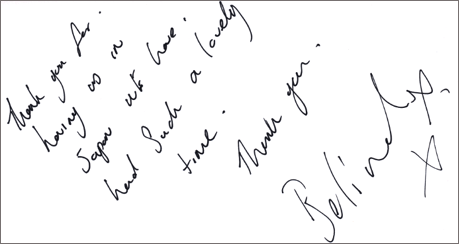 Thank you for
having us in
Japan we have
had such a lovely
time.
Thank you.
Belinda x
x